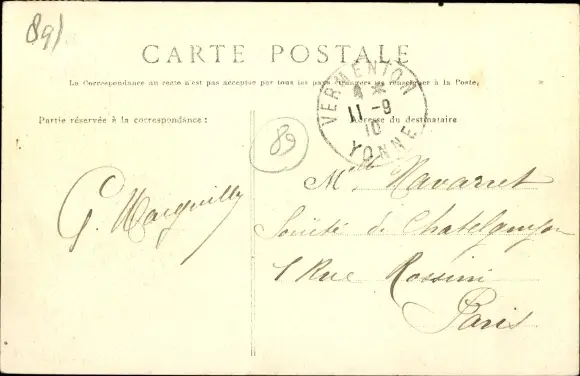 89/
CARTE POSTALE
La Correspondance au recto n'est pas acceptée par tous les pays étrangers (se renseigner à la Poste)
Partie réservée à la correspondance :
Adresse du destinataire
VERMENTON
11 -9
10
YONNE
89
G.
Mlle Navarret
Société de Chatelguyon
1 Rue Rossini
Paris